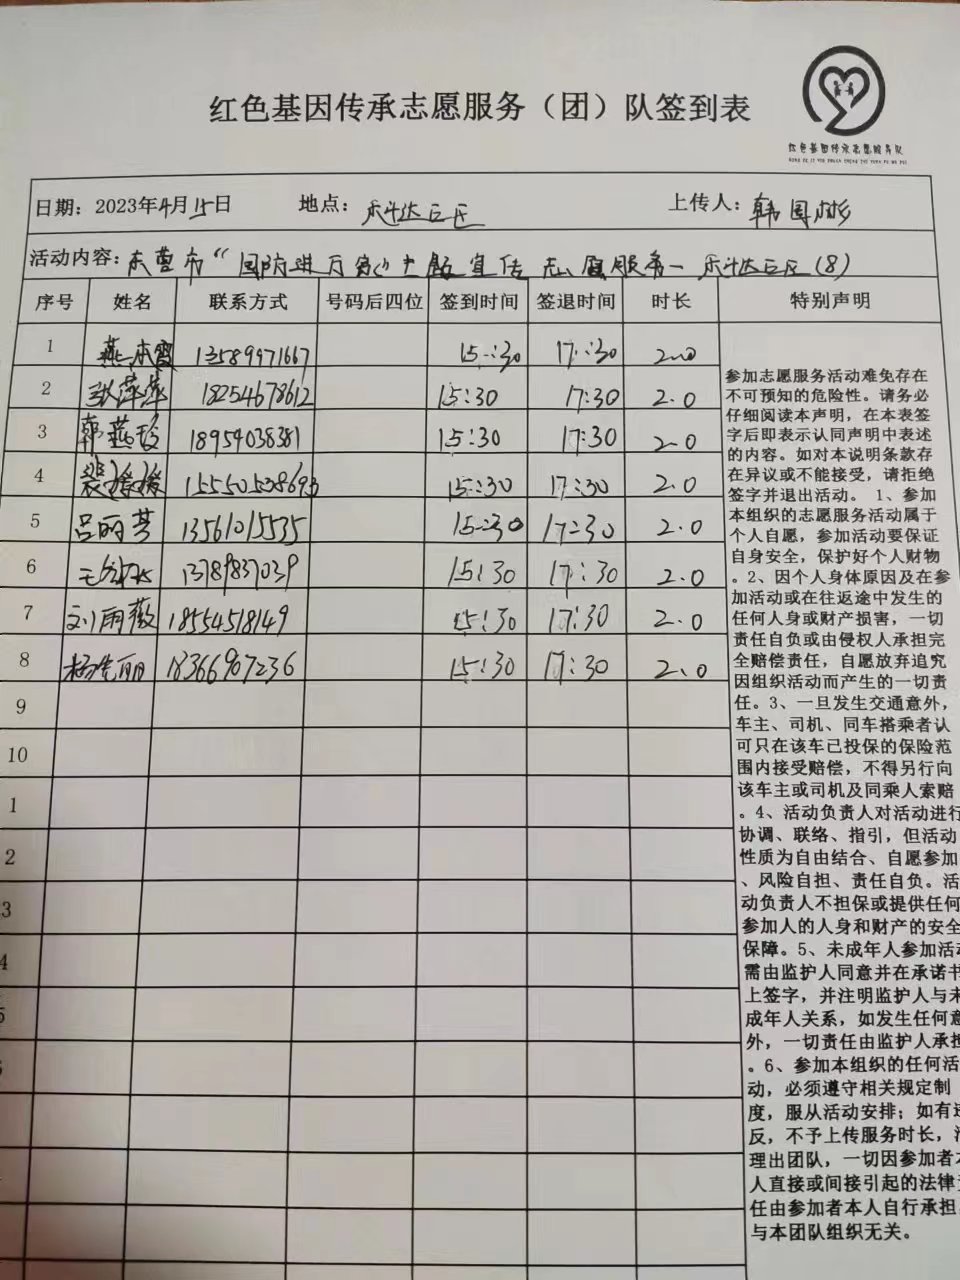 红色基因传承志愿服务（团）队签到表
红色基因传承志愿服务队
日期：2023年4月15日 地点： 上传人：韩国彬
活动内容：东营市“国防进万家”主题宣传志愿服务一 (8)
序号 姓名 联系方式 号码后四位 签到时间 签退时间 时长 特别声明
1 燕本霞 13589971667 15:30 17:30 2.0
2 张萍萍 18254678612 15:30 17:30 2.0
3 韩燕珍 18954038381 15:30 17:30 2.0
4 裴媛媛 15550538693 15:30 17:30 2.0
5 吕丽芳 13561015535 15:30 17:30 2.0
6 13789837039 15:30 17:30 2.0
7 刘雨薇 18554518149 15:30 17:30 2.0
8 18366967236 15:30 17:30 2.0
9
10
1
2
3
4
5
参加志愿服务活动难免存在
不可预知的危险性。请务必
仔细阅读本声明，在本表签
字后即表示认同声明中表述
的内容。如对本说明条款存
在异议或不能接受，请拒绝
签字并退出活动。 1、参加
本组织的志愿服务活动属于
个人自愿，参加活动要保证
自身安全，保护好个人财物
。2、因个人身体原因及在参
加活动或在往返途中发生的
任何人身或财产损害，一切
责任自负或由侵权人承担完
全赔偿责任，自愿放弃追究
因组织活动而产生的一切责
任。3、一旦发生交通意外，
车主、司机、同车搭乘者认
可只在该车已投保的保险范
围内接受赔偿，不得另行向
该车主或司机及同乘人索赔
。4、活动负责人对活动进行
协调、联络、指引，但活动
性质为自由结合、自愿参加
、风险自担、责任自负。活
动负责人不担保或提供任何
参加人的人身和财产的安全
保障。5、未成年人参加活动
需由监护人同意并在承诺书
上签字，并注明监护人与未
成年人关系，如发生任何意
外，一切责任由监护人承担
。6、参加本组织的任何活
动，必须遵守相关规定制
度，服从活动安排；如有违
反，不予上传服务时长，清
理出团队，一切因参加者本
人直接或间接引起的法律责
任由参加者本人自行承担，
与本团队组织无关。